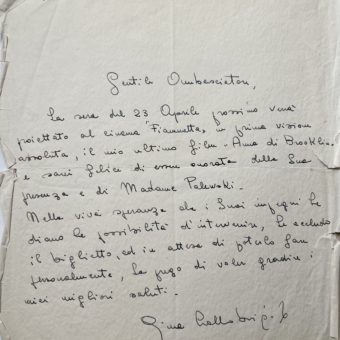 Gentile Ambasciatore,
La sera del 23 Aprile prossimo verrà
proiettato al cinema "Fiammetta", in prima visione
assoluta, il mio ultimo film - Anna di Brooklin.
e sarei felice di essere onorata della Sua
presenza e di Madame Palewski.
Nella viva speranza che i Suoi impegni Le
diano la possibilità d'intervenire, Le accludo
il biglietto, ed in attesa di poterlo fare
personalmente, La prego di voler gradire i
miei migliori saluti.
Gina Lollobrigida